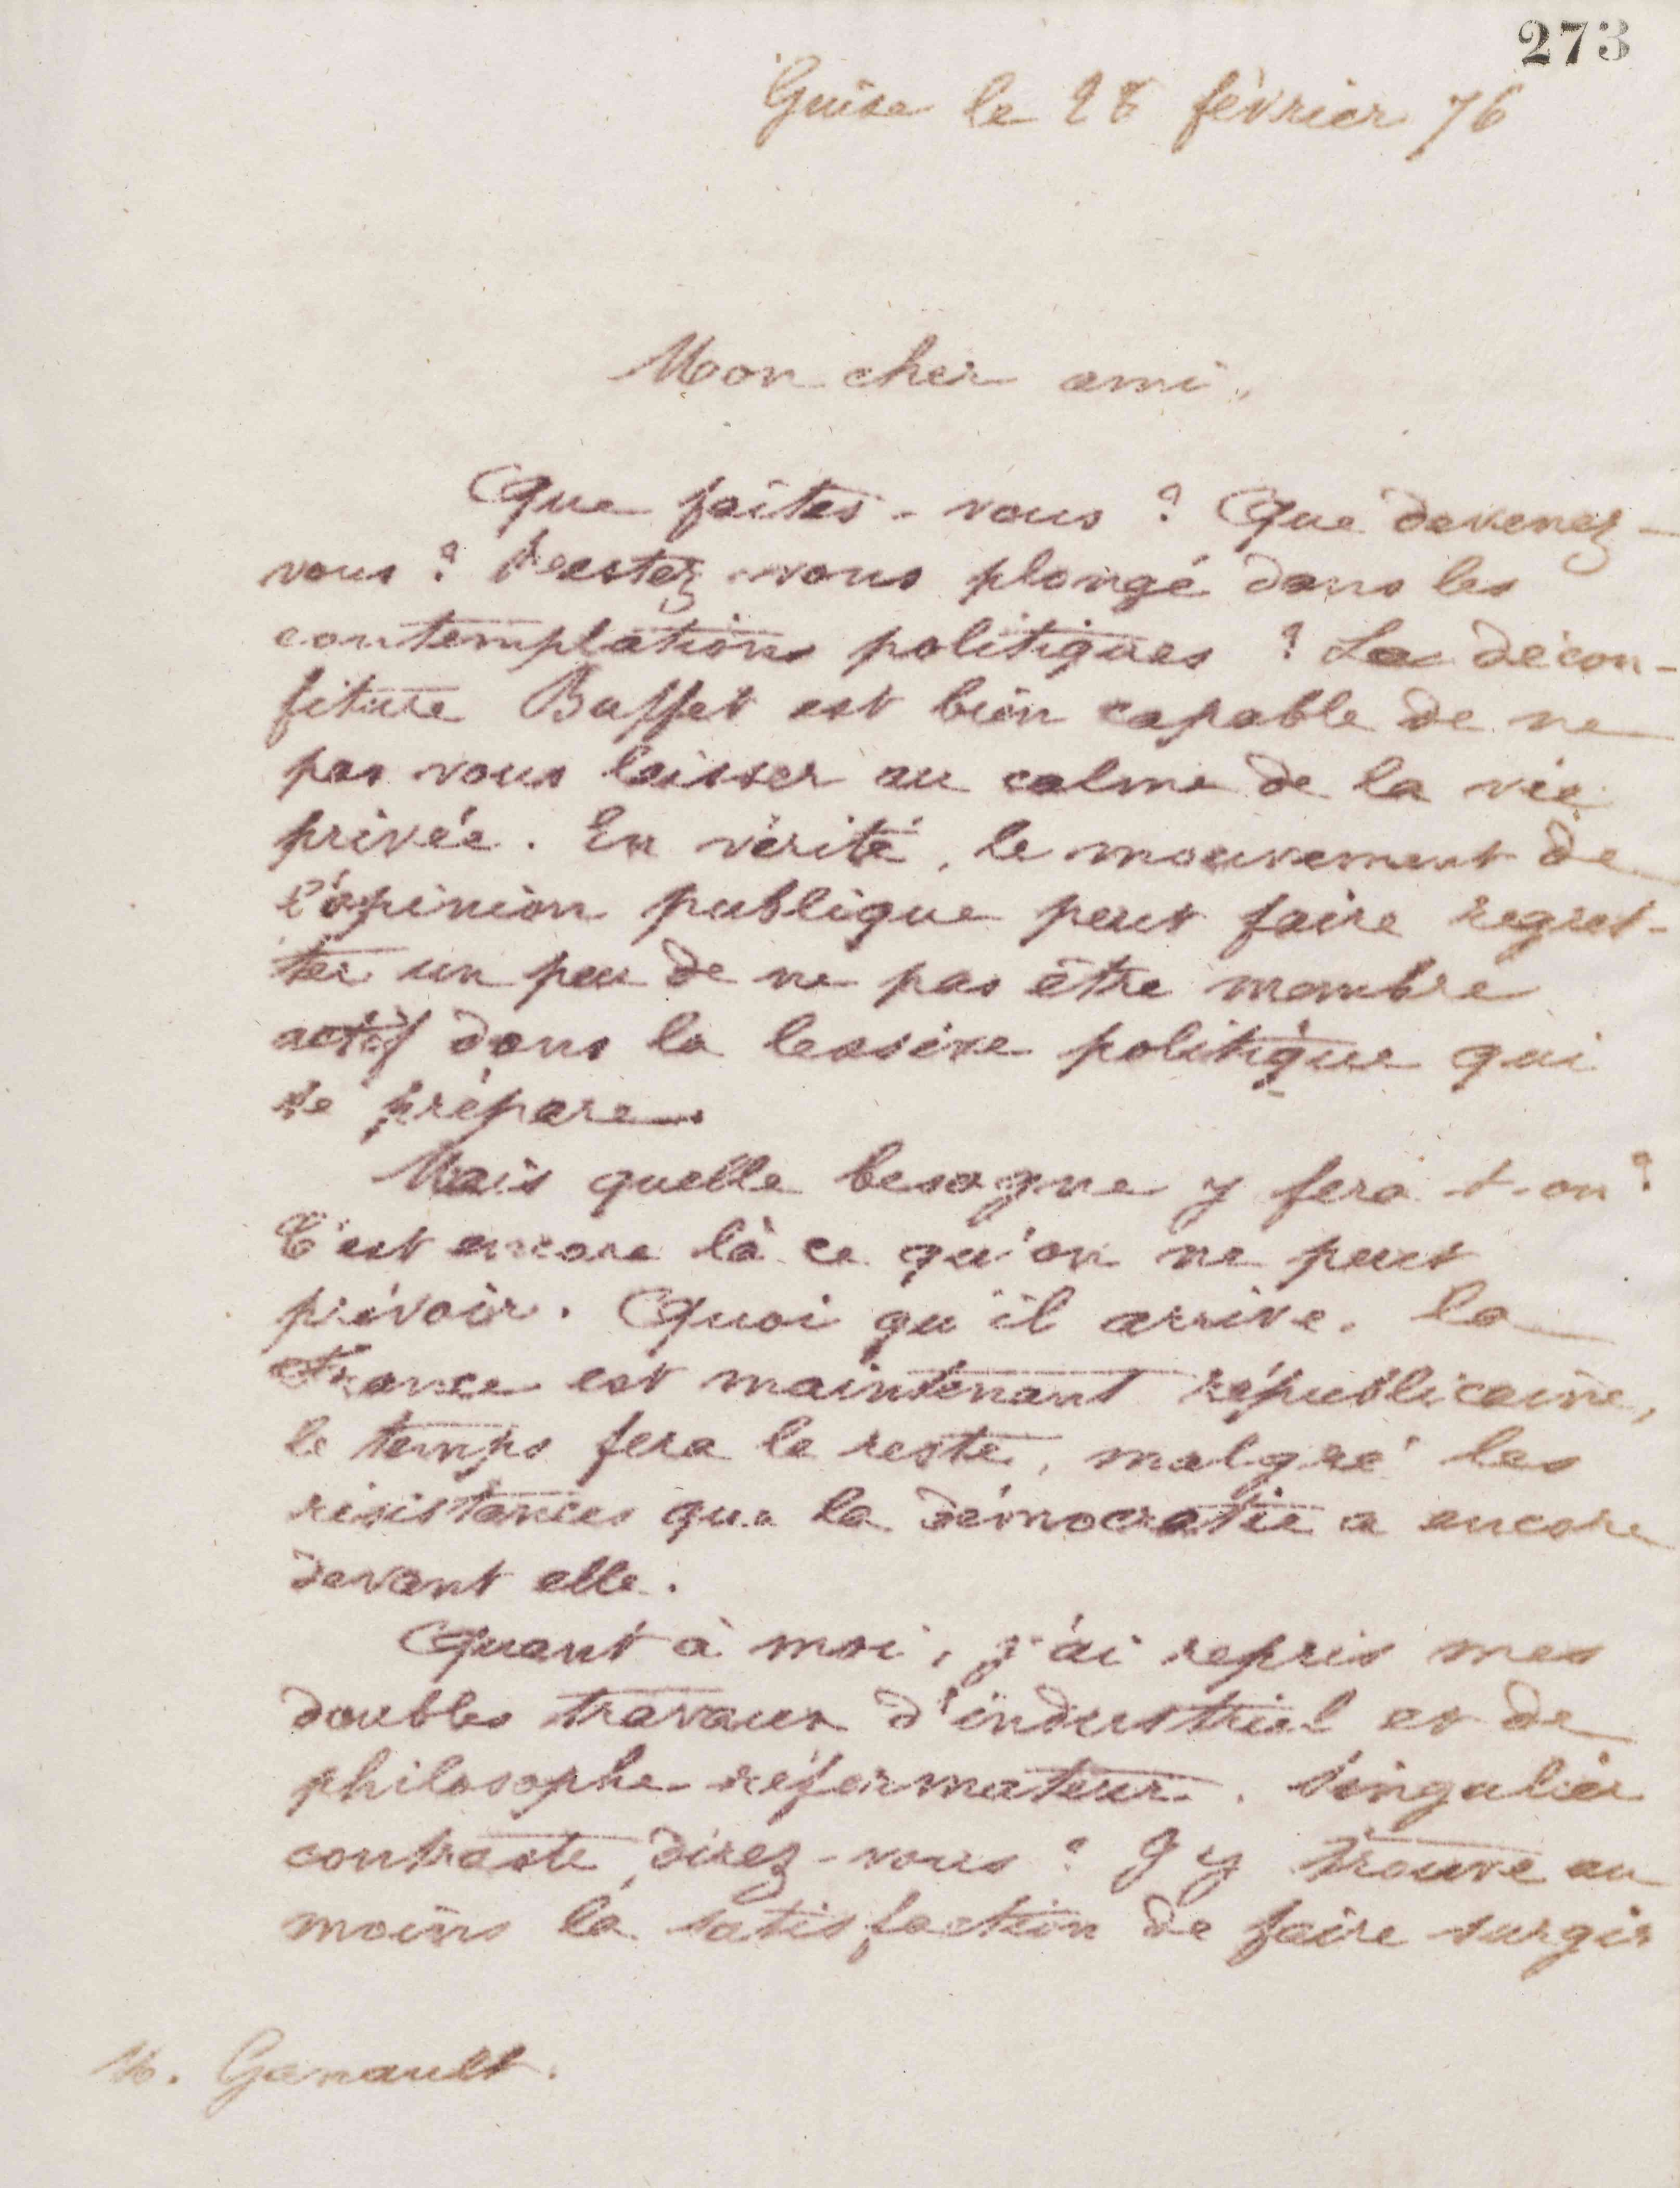 273
Guise le 28 février 76
Mon cher ami,
Que faites-vous ? Que devenez-
vous ? Restez-vous plongé dans les
contemplations politiques ? La décon-
fiture Buffet est bien capable de ne
pas vous laisser au calme de la vie
privée. En vérité, le mouvement de
l'opinion publique peut faire regret-
ter un peu de ne pas être membre
actif dans la lessive politique qui
se prépare.
Mais quelle besogne y fera-t-on ?
C'est encore là ce qu'on ne peut
prévoir. Quoi qu'il arrive, la
France est maintenant républicaine,
le temps fera le reste, malgré les
résistances que la démocratie a encore
devant elle.
Quant à moi, j'ai repris mes
doubles travaux d'industriel et de
philosophe-réformateur. Singulier
contraste direz-vous ? J'y trouve au
moins la satisfaction de faire surgir
M. Ganault.